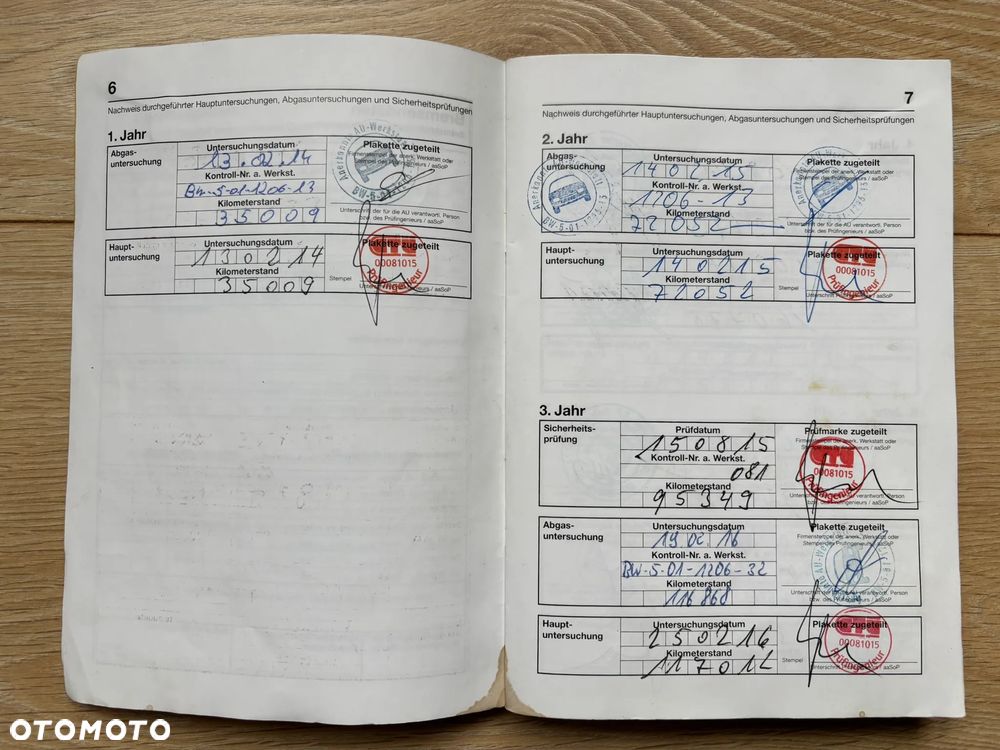 6
Nachweis durchgeführter Hauptuntersuchungen, Abgasuntersuchungen und Sicherheitsprüfungen
1. Jahr
Abgas-
untersuchung
Untersuchungsdatum
13.02.14
Kontroll-Nr. a. Werkst.
BW-5-01-1206-13
Kilometerstand
35009
Plakette zugeteilt
Firmenstempel der anerk. Werkstatt oder
Stempel des Prüfingenieurs / aaSoP
Unterschrift der für die AU verantwortl. Person
bzw. des Prüfingenieurs / aaSoP
Haupt-
untersuchung
Untersuchungsdatum
130214
Kilometerstand
35009
Stempel
Plakette zugeteilt
00081015
Prüfingenieur
Unterschrift Prüfingenieurs / aaSoP
7
Nachweis durchgeführter Hauptuntersuchungen, Abgasuntersuchungen und Sicherheitsprüfungen
2. Jahr
Abgas-
untersuchung
Untersuchungsdatum
140215
Kontroll-Nr. a. Werkst.
1706-13
Kilometerstand
72052
Plakette zugeteilt
Firmenstempel der anerk. Werkstatt oder
Stempel des Prüfingenieurs / aaSoP
Unterschrift der für die AU verantwortl. Person
bzw. des Prüfingenieurs / aaSoP
Haupt-
untersuchung
Untersuchungsdatum
140215
Kilometerstand
72052
Stempel
Plakette zugeteilt
00081015
Prüfingenieur
Unterschrift Prüfingenieurs / aaSoP
3. Jahr
Sicherheits-
prüfung
Prüfdatum
150815
Kontroll-Nr. a. Werkst.
081
Kilometerstand
95349
Prüfmarke zugeteilt
Firmenstempel der anerk. Werkstatt oder
Stempel des Prüfingenieurs / aaSoP
00081015
Prüfingenieur
Unterschrift verantwortl. Person
bzw. des Prüfingenieurs / aaSoP
Abgas-
untersuchung
Untersuchungsdatum
190216
Kontroll-Nr. a. Werkst.
BW-5-01-1206-32
Kilometerstand
116868
Plakette zugeteilt
Firmenstempel der anerk. Werkstatt oder
Stempel des Prüfingenieurs / aaSoP
Unterschrift der für die AU verantwortl. Person
bzw. des Prüfingenieurs / aaSoP
Haupt-
untersuchung
Untersuchungsdatum
250216
Kilometerstand
117012
Stempel
Plakette zugeteilt
00081015
Prüfingenieur
Unterschrift Prüfingenieurs / aaSoP
OTOMOTO